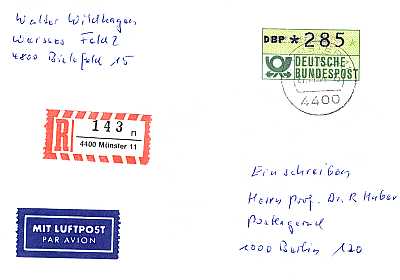 Walter Wildhagen
Wersses Feld 2
4800 Bielefeld 15
DBP *285
DEUTSCHE
BUNDESPOST
4400
R 143 n
4400 Münster 11
Einschreiben
Herrn Prof. Dr. R Huber
1000 Berlin 120
MIT LUFTPOST
PAR AVION